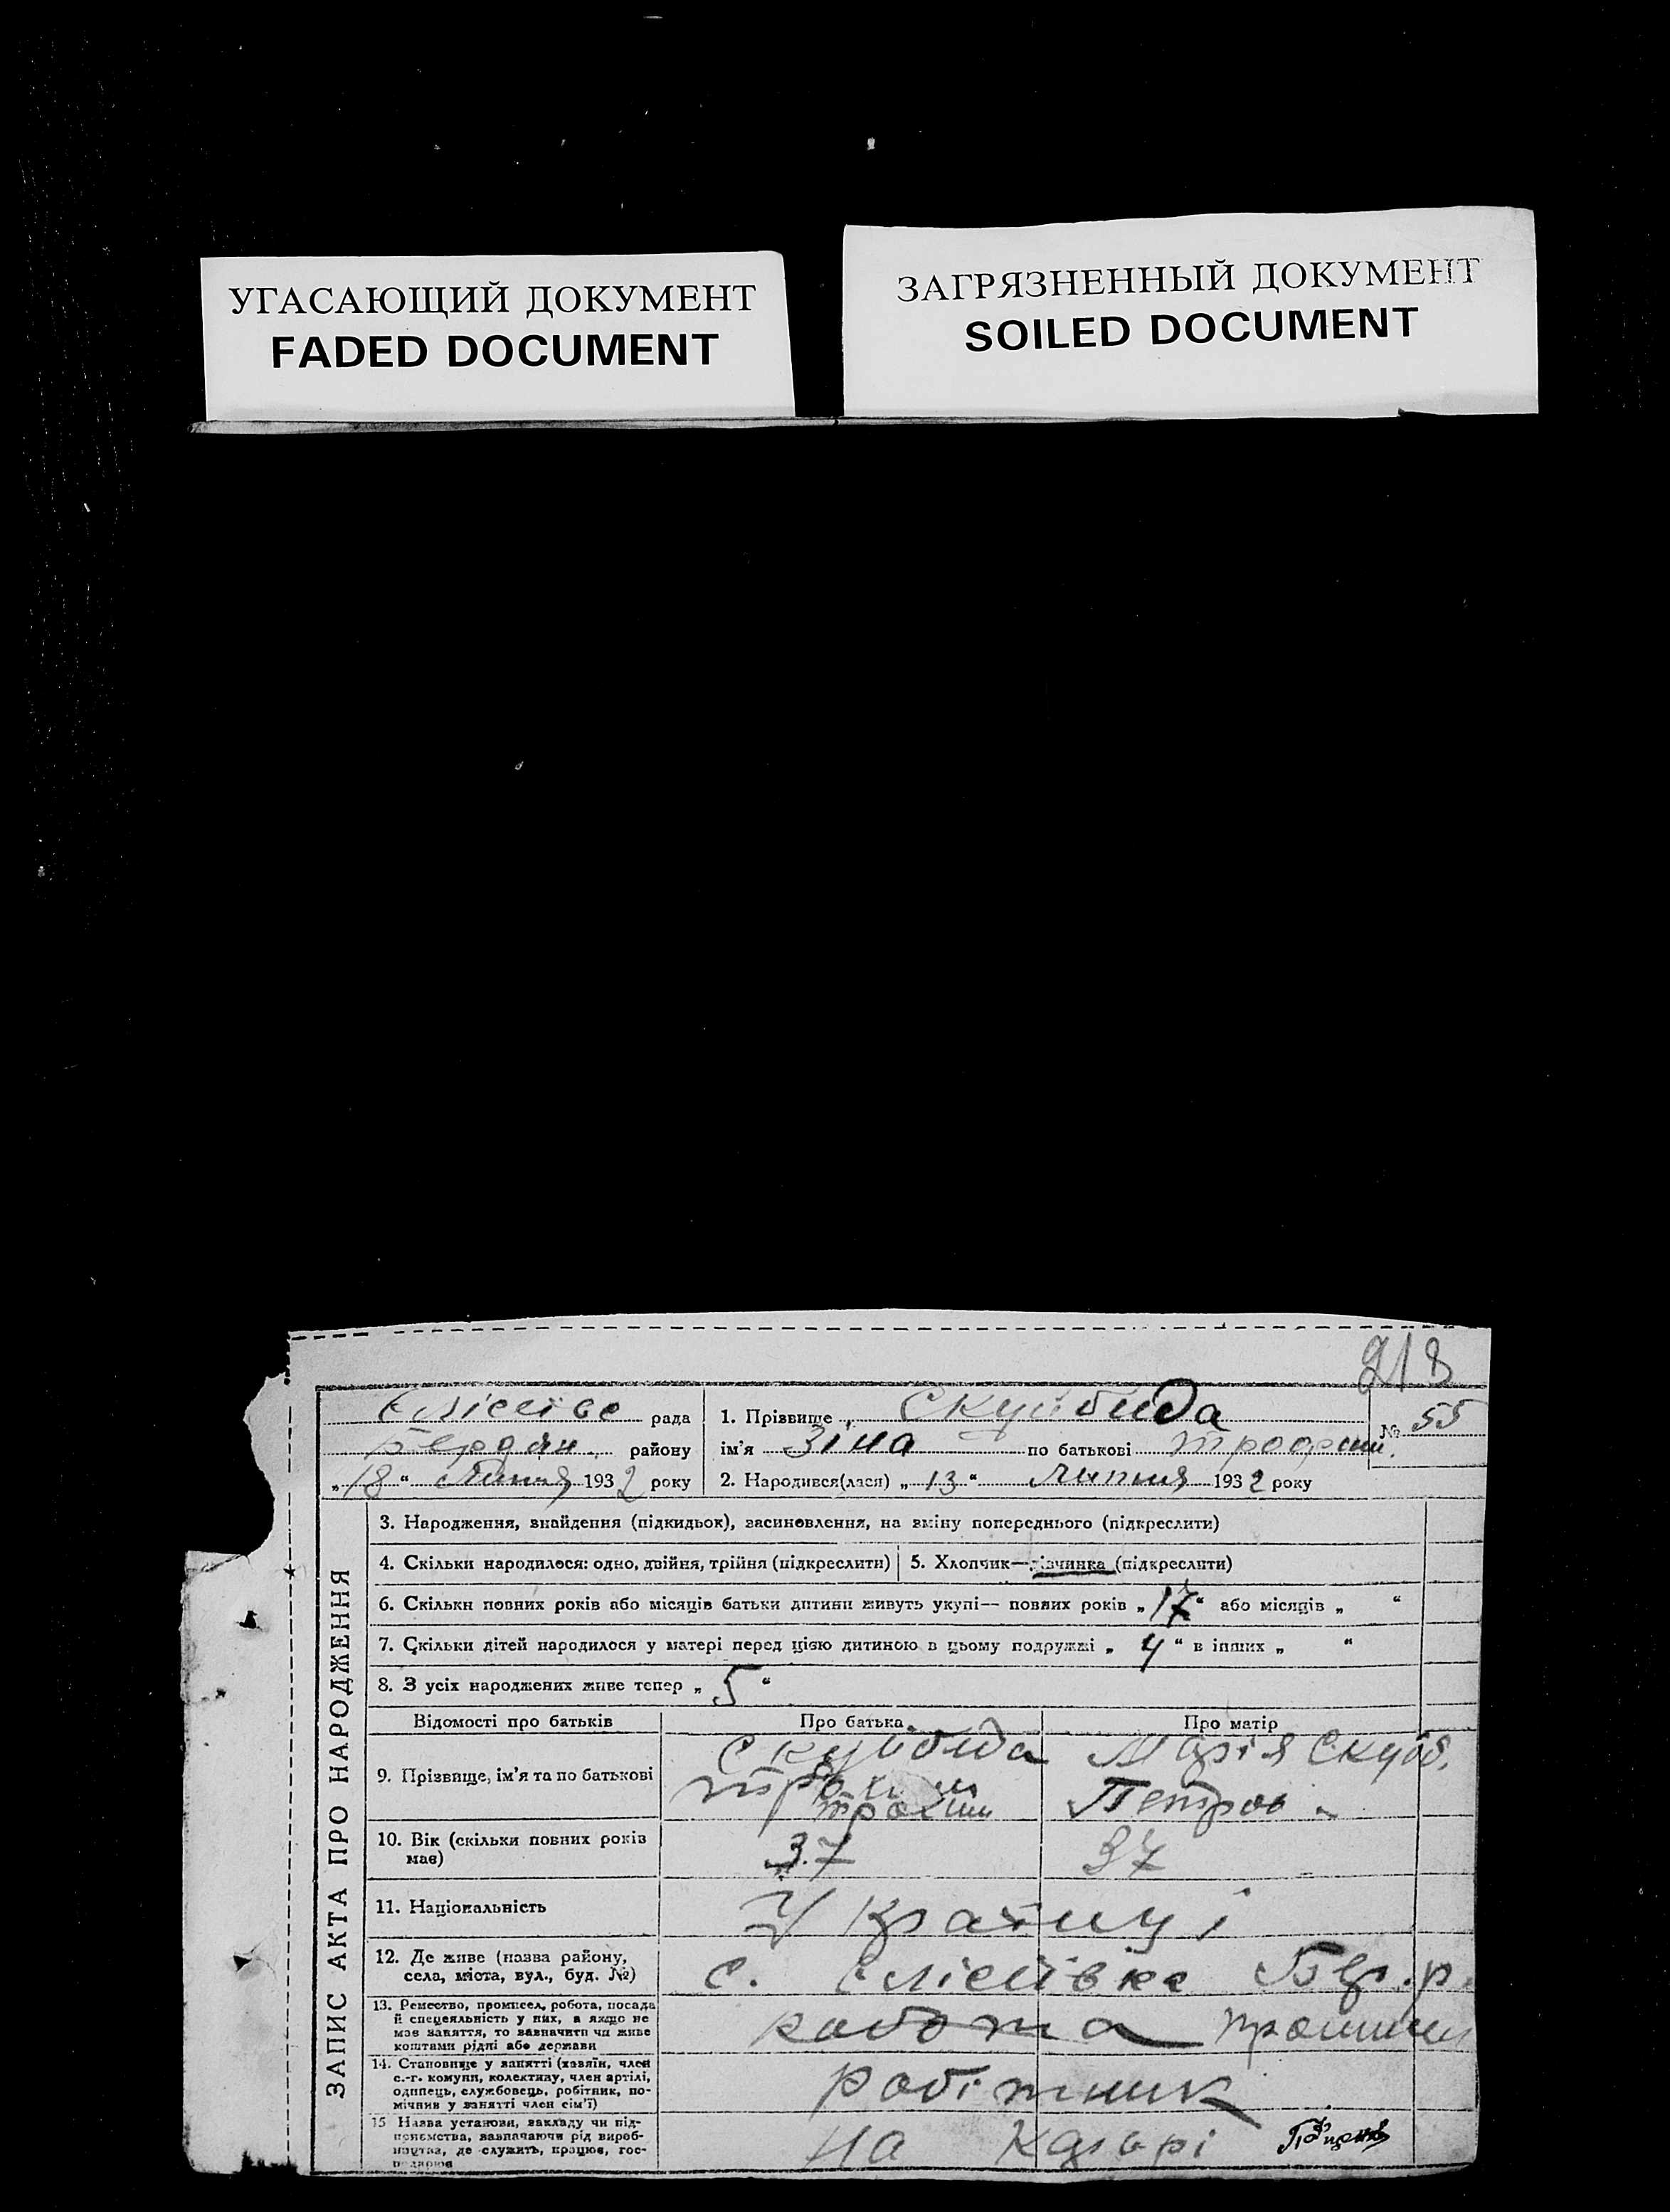 УГАСАЮЩИЙ ДОКУМЕНТ
FADED DOCUMENT
ЗАГРЯЗНЕННЫЙ ДОКУМЕНТ
SOILED DOCUMENT
218
Єлісеїве рада
Бердян. району
„18“ Липня 1932 року
1. Прізвище Скуйбида
№ 55
ім'я Зіна по батькові Трофим.
2. Народився(лася) „13“ Липня 1932 року
ЗАПИС АКТА ПРО НАРОДЖЕННЯ
3. Народження, знайдення (підкидьок), засиновлення, на зміну попереднього (підкреслити)
4. Скільки народилося: одно, двійня, трійня (підкреслити)
5. Хлопчик—дівчинка (підкреслити)
6. Скільки повних років або місяців батьки дитини живуть укупі— повних років „17“ або місяців „ “
7. Скільки дітей народилося у матері перед цією дитиною в цьому подружжі „4“ в інших „ “
8. З усіх народжених живе тепер „5“
Відомості про батьків
Про батька
Про матір
9. Прізвище, ім'я та по батькові
Скуйбида
Марія Скуйб.
Петров
10. Вік (скільки повних років має)
37
37
11. Національність
Українці
12. Де живе (назва району, села, міста, вул., буд. №)
с. Єлісеївка Бер. р.
13. Ремество, промисел, робота, посада й спецеяльність у них, а якщо не має заняття, то зазначити чи живе коштами рідні або держави
робота
14. Становище у занятті (хазяїн, член с.-г. комуни, колективу, член артілі, одинець, службовець, робітник, помічник у занятті член сім'ї)
робітник
15 Назва установи, закладу чи підприємства, зазначаючи рід виробництва, де служить, працює, господарює
на Карьрі